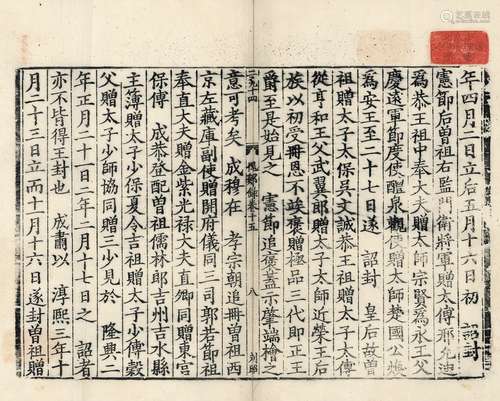 年四月二日立后五月十六日初 詔封
憲節后曾祖右監門衛將軍贈太傅邢允迪
為恭王祖中奉大夫贈太師宗賢為永王父
慶遠軍節度使醴泉觀使贈太師楚國公煥
為安王至二十七日遂 詔封 皇后故曾
祖贈太子太保吳文誠恭王祖贈太子太傅
從肓和王父武翼郎贈太子太師近榮王后
族以初受冊恩不俟褒贈極品三代即正王
爵至是始見之 憲節追褒蓋示肇端檜之
意可考矣 成穆在 孝宗朝追冊曾祖西
京左藏庫副使贈開府儀同三司郭若節祖
奉直大夫贈金紫光祿大夫直卿同贈東宮
保傅 成恭登配曾祖儒林郎吉州吉水縣
主簿贈太子少保夏令吉祖贈太子少傅穀
父贈太子少師協同贈三少見於 隆興二
年正月二十一日二年二月十七日之 詔者
亦不皆得王封也 成肅以 淳熙三年十
月二十三日立而十月十六日遂封曾祖贈
愧郯錄卷十五
八